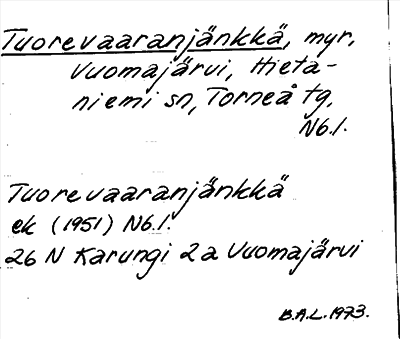 Tuorevaaranjänkkä, myr,
Vuomajärvi, Hieta-
niemi sn, Torneå tg,
N6.1.
Tuorevaaranjänkkä
ek (1951) N6.1.
26 N Karungi 2a Vuomajärvi
B.A.L. 1973.